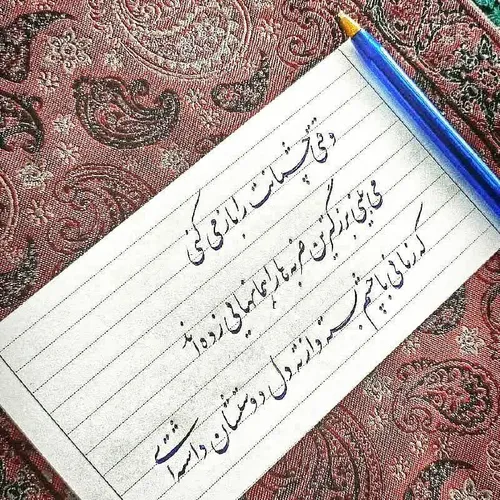 وقتی چشمانت را باز می کنی
می بینی بزرگترین ضربه ها را همانهایی زده اند
که زمانی با چشم بسته و از ته دل دوستشان داشته ای